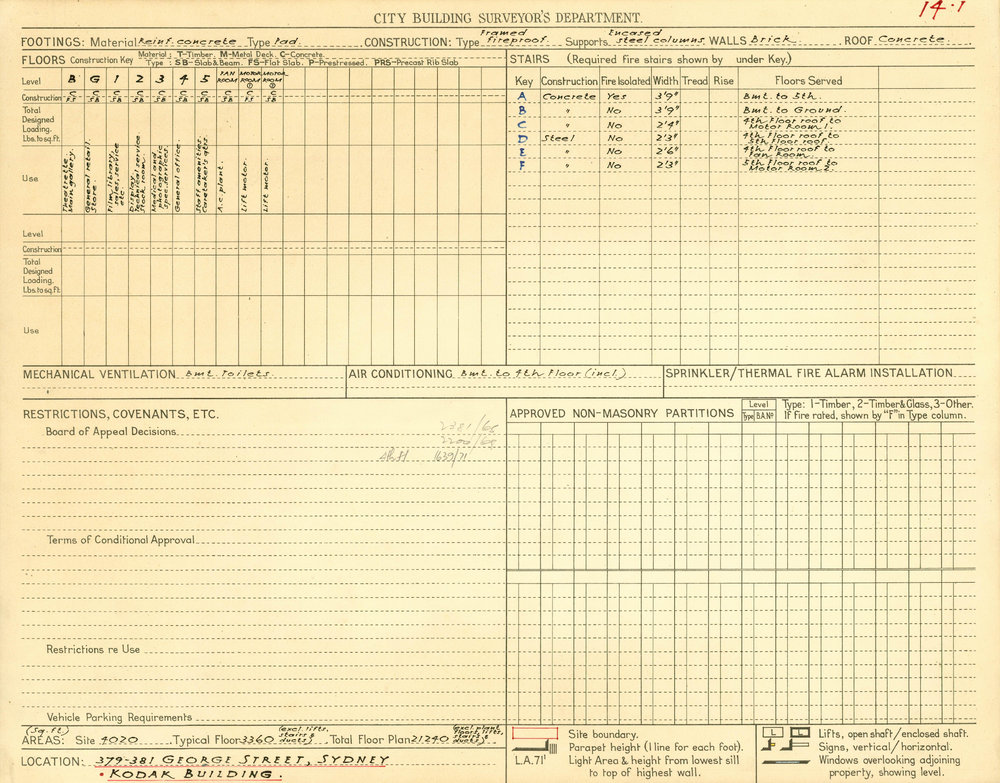 14.1
CITY BUILDING SURVEYOR'S DEPARTMENT.
FOOTINGS: Material Reinf. concrete Type Pad. CONSTRUCTION: Type Framed fireproof. Supports Encased steel columns. WALLS Brick. ROOF Concrete.
FLOORS Construction Key Material: T-Timber. M-Metal Deck. C-Concrete.
Type: SB-Slab&Beam. FS-Flat Slab. P-Prestressed. PRS-Precast Rib Slab
Level B G 1 2 3 4 5 FAN ROOM MOTOR ROOM ① MOTOR ROOM ②
Construction C FS C SB C SB C SB C SB C SB C SB C SB C FS C SB
Total
Designed
Loading.
Lbs. to sq. ft.
Use
Theatrette. Main gallery.
General retail. Store.
Film, library, sales, service etc.
Display. Technical service Stock room.
Medical and photographic spec. services.
General office.
Staff amenities. Caretaker's qts.
A.c. plant.
Lift motor.
Lift motor.
Level
Construction
Total
Designed
Loading.
Lbs. to sq. ft.
Use
STAIRS (Required fire stairs shown by under Key.)
Key Construction Fire Isolated Width Tread Rise Floors Served
A Concrete Yes 3'9" Bmt. to 5th.
B " No 3'9" Bmt. to Ground.
C " No 2'4" 4th Floor roof to Motor Room 1.
D Steel No 2'3" 4th Floor roof to 5th Floor roof.
E " No 2'6" 4th Floor roof to Fan Room.
F " No 2'3" 5th Floor roof to Motor Room 2.
MECHANICAL VENTILATION Bmt. toilets.
AIR CONDITIONING Bmt. to 4th Floor (incl.)
SPRINKLER/THERMAL FIRE ALARM INSTALLATION
RESTRICTIONS, COVENANTS, ETC.
Board of Appeal Decisions
2381/68
2200/68
1639/71
Terms of Conditional Approval
Restrictions re Use
Vehicle Parking Requirements
APPROVED NON-MASONRY PARTITIONS Level Type B.A.No Type: 1-Timber, 2-Timber&Glass, 3-Other.
If fire rated, shown by "F" in Type column.
(Sq. ft.)
AREAS: Site 4020 Typical Floor 3360 (excl. lifts, stairs & ducts) Total Floor Plan 21240 (excl. plant floors, lifts, stairs & ducts)
LOCATION: 379-381 GEORGE STREET, SYDNEY
• KODAK BUILDING.
Site boundary.
Parapet height (1 line for each foot).
L.A.71' Light Area & height from lowest sill
to top of highest wall.
L Lifts, open shaft/enclosed shaft.
Signs, vertical/horizontal.
Windows overlooking adjoining
property, showing level.